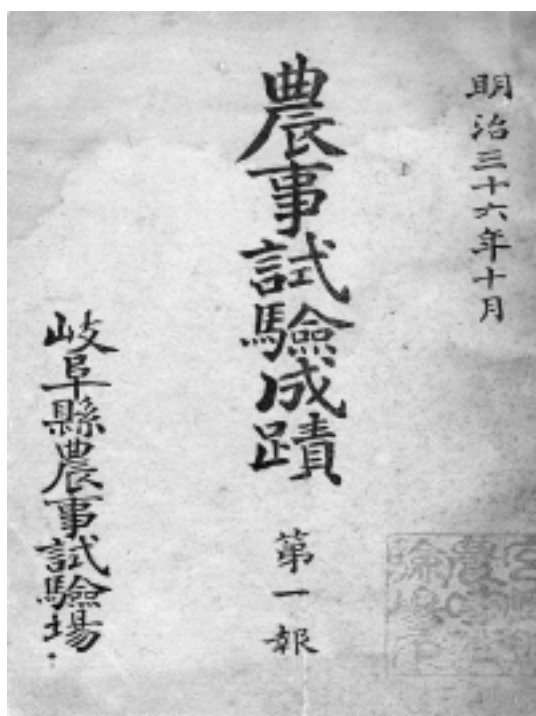 明治三十六年十月
農事試驗成蹟
第一報
岐阜縣農事試驗場